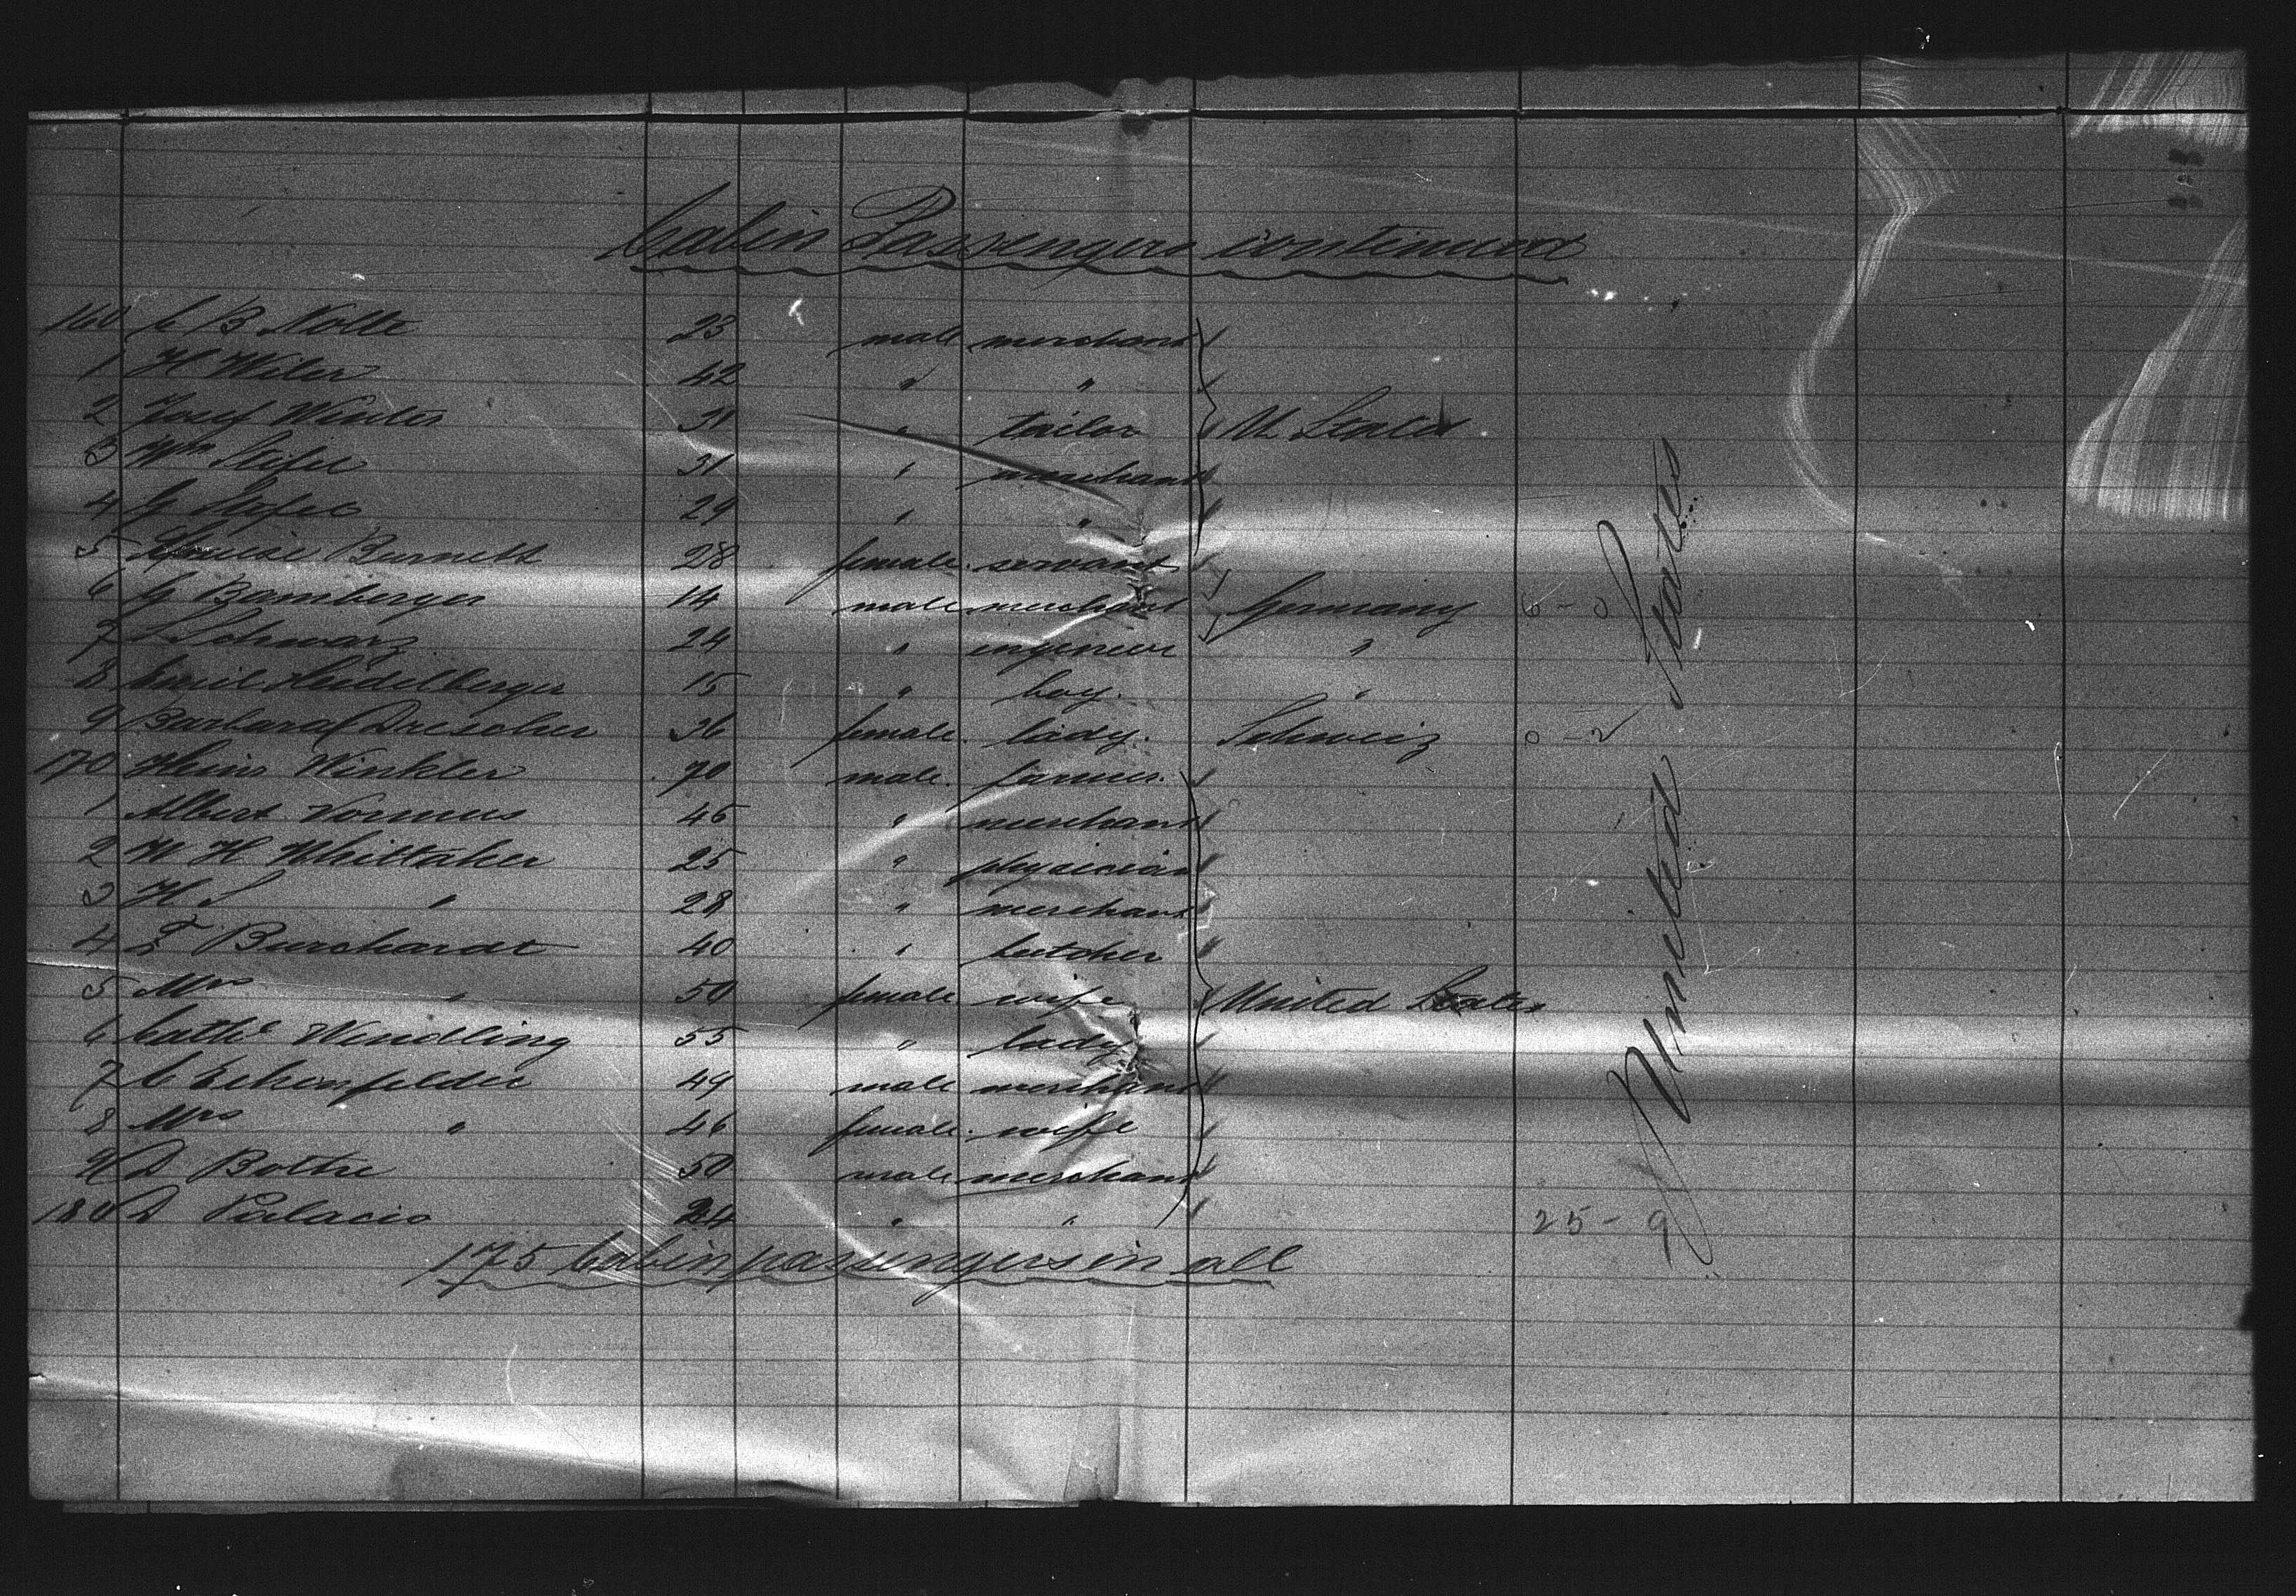 Cabin Passengers continued
160 C B Nolte 23 male merchant
1 H Wiler 42 " "
2 Josef Winter 31 " tailor U States
3 Wm Stifel 31 " merchant
4 G Stifel 29 " "
5 Louise Burnett 28 female servant
6 G Bamberger 14 male merchant Germany 6 - 0
7 L Schwarz 24 " ingenieur "
8 Emil Heidelberger 15 " boy "
9 Barbara Drescher 36 female lady Schweiz 0 - 2
170 Heinr Winkler 70 male farmer
1 Albert Vormus 46 " merchant
2 W H Whittaker 25 " physician
3 H S " 28 " merchant
4 F Burchardt 40 " butcher
5 Mrs " 50 female wife United States
6 Cathe Wendling 55 " lady
7 C Echenfelder 49 male merchant
8 Mrs " 46 female wife
9 D Bothe 50 male merchant
180 D Palacio 24 " "
25 - 9
175 Cabin passengers in all
United States